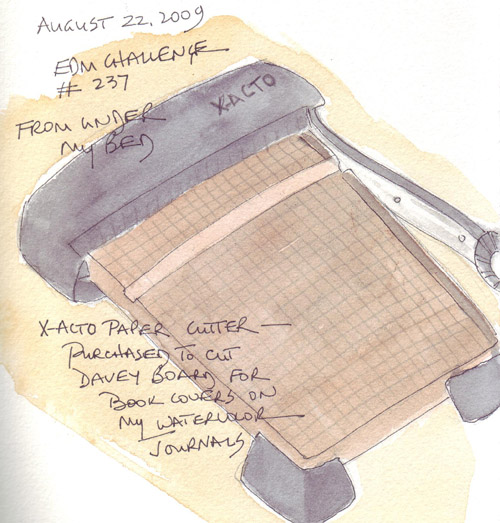 AUGUST 22, 2009
EDM CHALLENGE
# 237
FROM UNDER
MY BED
X-ACTO
X-ACTO PAPER CUTTER —
PURCHASED TO CUT
DAVEY BOARD FOR
BOOK COVERS ON
MY WATERCOLOR
JOURNALS